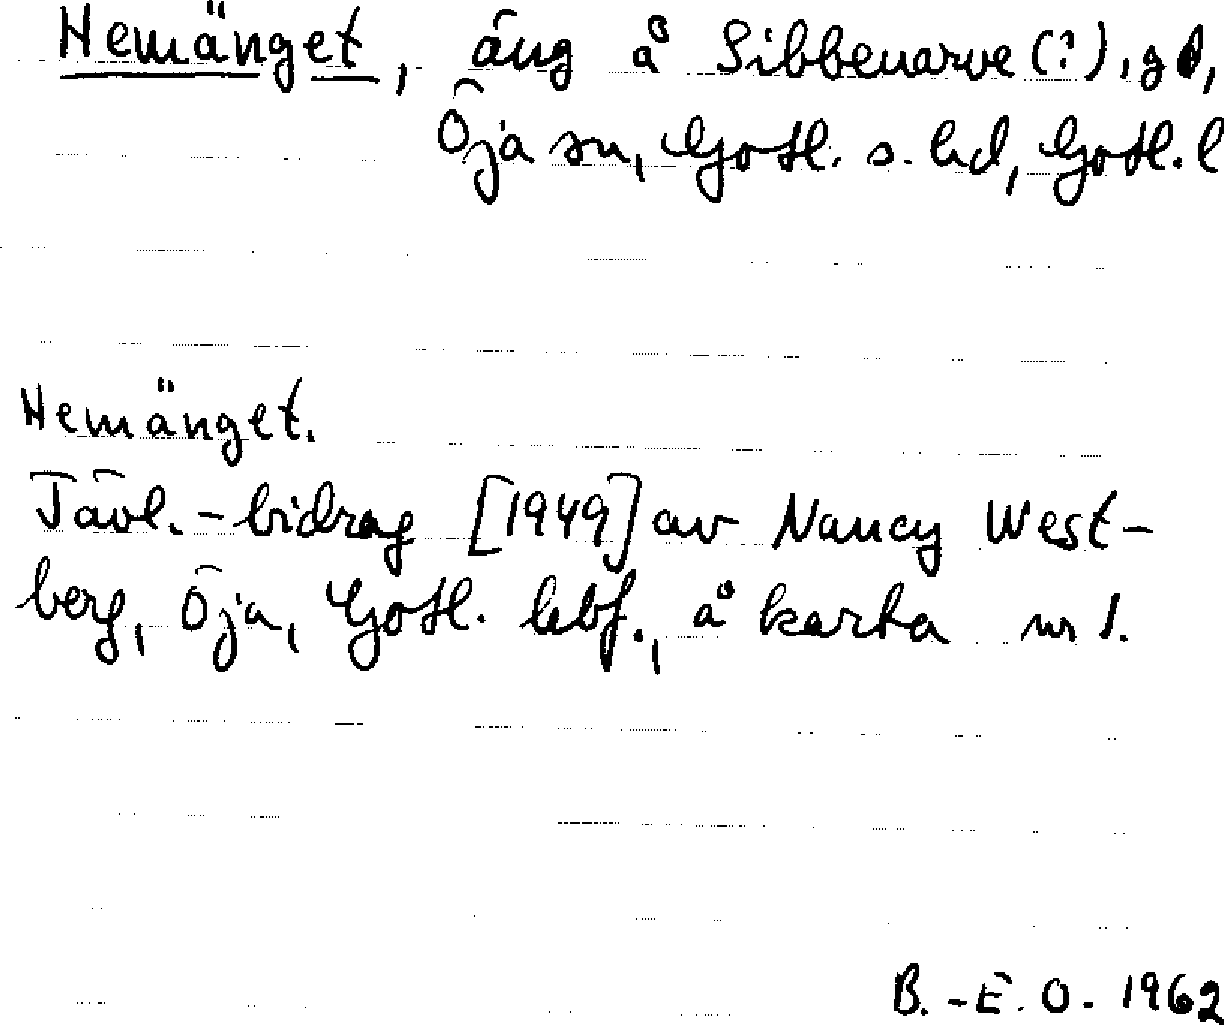 Hemänget, äng å Sibbenarve (?), gd,
Öja sn, Gotl. s. hd, Gotl. l
Hemänget.
Tävl.-bidrag [1949] av Nancy West-
berg, Öja, Gotl. lebf., å karta nr 1.
B.-E. O. 1962